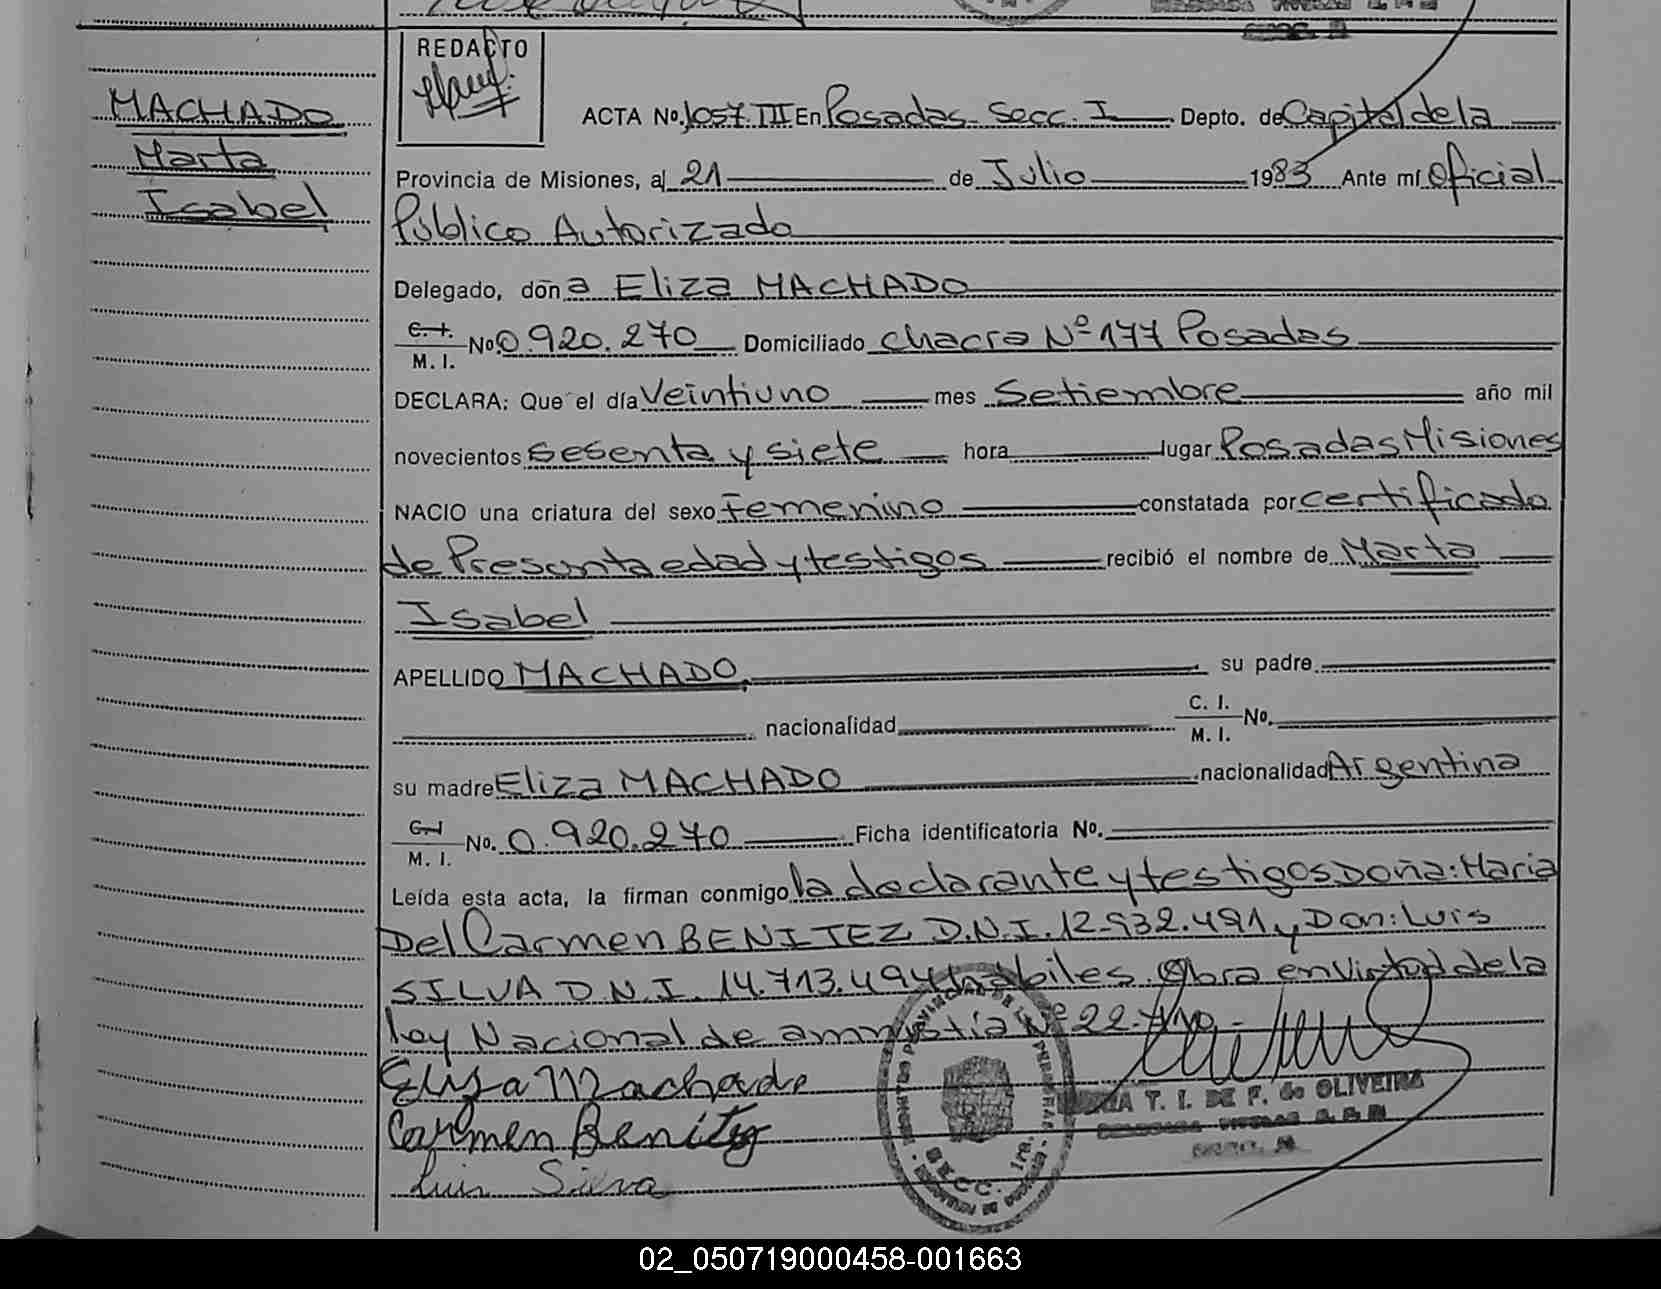 REDACTO
MACHADO
Marta
Isabel
ACTA No. 1057.III En Posadas Secc. I Depto. de Capital de la
Provincia de Misiones, al 21 de Julio 1983 Ante mí Oficial
Público Autorizado
Delegado, doña Eliza MACHADO
C. I.
M. I. No. 0.920.270 Domiciliado chacra Nº 177 Posadas
DECLARA: Que el día Veintiuno mes Setiembre año mil
novecientos sesenta y siete hora lugar Posadas Misiones
NACIO una criatura del sexo Femenino constatada por certificado
de Presunta edad y testigos recibió el nombre de Marta
Isabel
APELLIDO MACHADO su padre
nacionalidad C. I.
M. I. No.
su madre Eliza MACHADO nacionalidad Argentina
C. I.
M. I. No. 0.920.270 Ficha identificatoria No.
Leída esta acta, la firman conmigo la declarante y testigos Doña: Maria
Del Carmen BENITEZ D.N.I. 12.932.491 y Don: Luis
SILVA D.N.I. 14.713.494 habiles. Obra en Virtud de la
ley Nacional de amnistía Nº
Elisa Machado
Carmen Benitez
Luis Silva
T. I. DE F. de OLIVEIRA
SECC. 1ra.
02_050719000458-001663